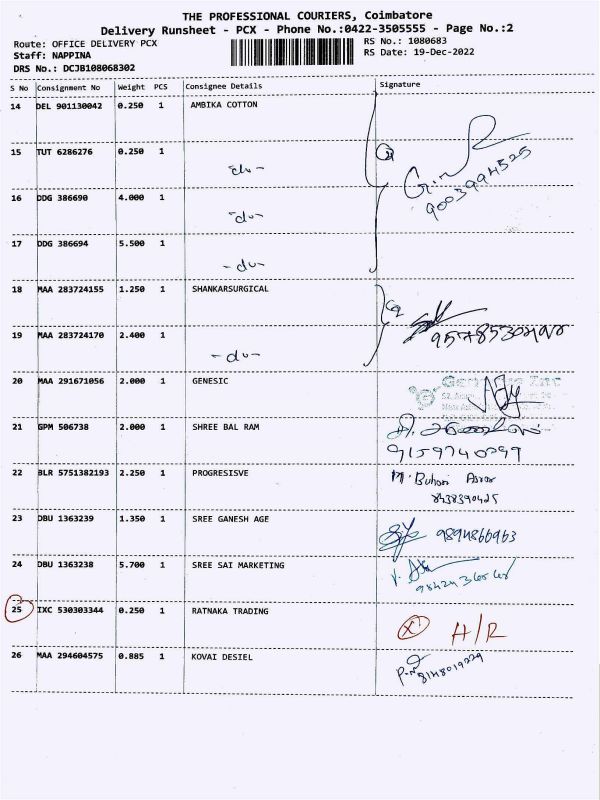 THE PROFESSIONAL COURIERS, Coimbatore
Delivery Runsheet - PCX - Phone No.:0422-3505555 - Page No.:2
Route: OFFICE DELIVERY PCX
Staff: NAPPINA
DRS No.: DCJB108068302
RS No.: 1080683
RS Date: 19-Dec-2022
S No Consignment No Weight PCS Consignee Details Signature
14 DEL 901130042 0.250 1 AMBIKA COTTON
15 TUT 6286276 0.250 1 -do-
9003994525
16 DDG 386690 4.000 1 -do-
17 DDG 386694 5.500 1 -do-
18 MAA 283724155 1.250 1 SHANKARSURGICAL
19 MAA 283724170 2.400 1 -do-
20 MAA 291671056 2.000 1 GENESIC
21 GPM 506738 2.000 1 SHREE BAL RAM
9159740299
22 BLR 5751382193 2.250 1 PROGRESISVE
23 DBU 1363239 1.350 1 SREE GANESH AGE 9894866963
24 DBU 1363238 5.700 1 SREE SAI MARKETING
25 IXC 530303344 0.250 1 RATNAKA TRADING A/R
26 MAA 294604575 0.885 1 KOVAI DESIEL
8148019229